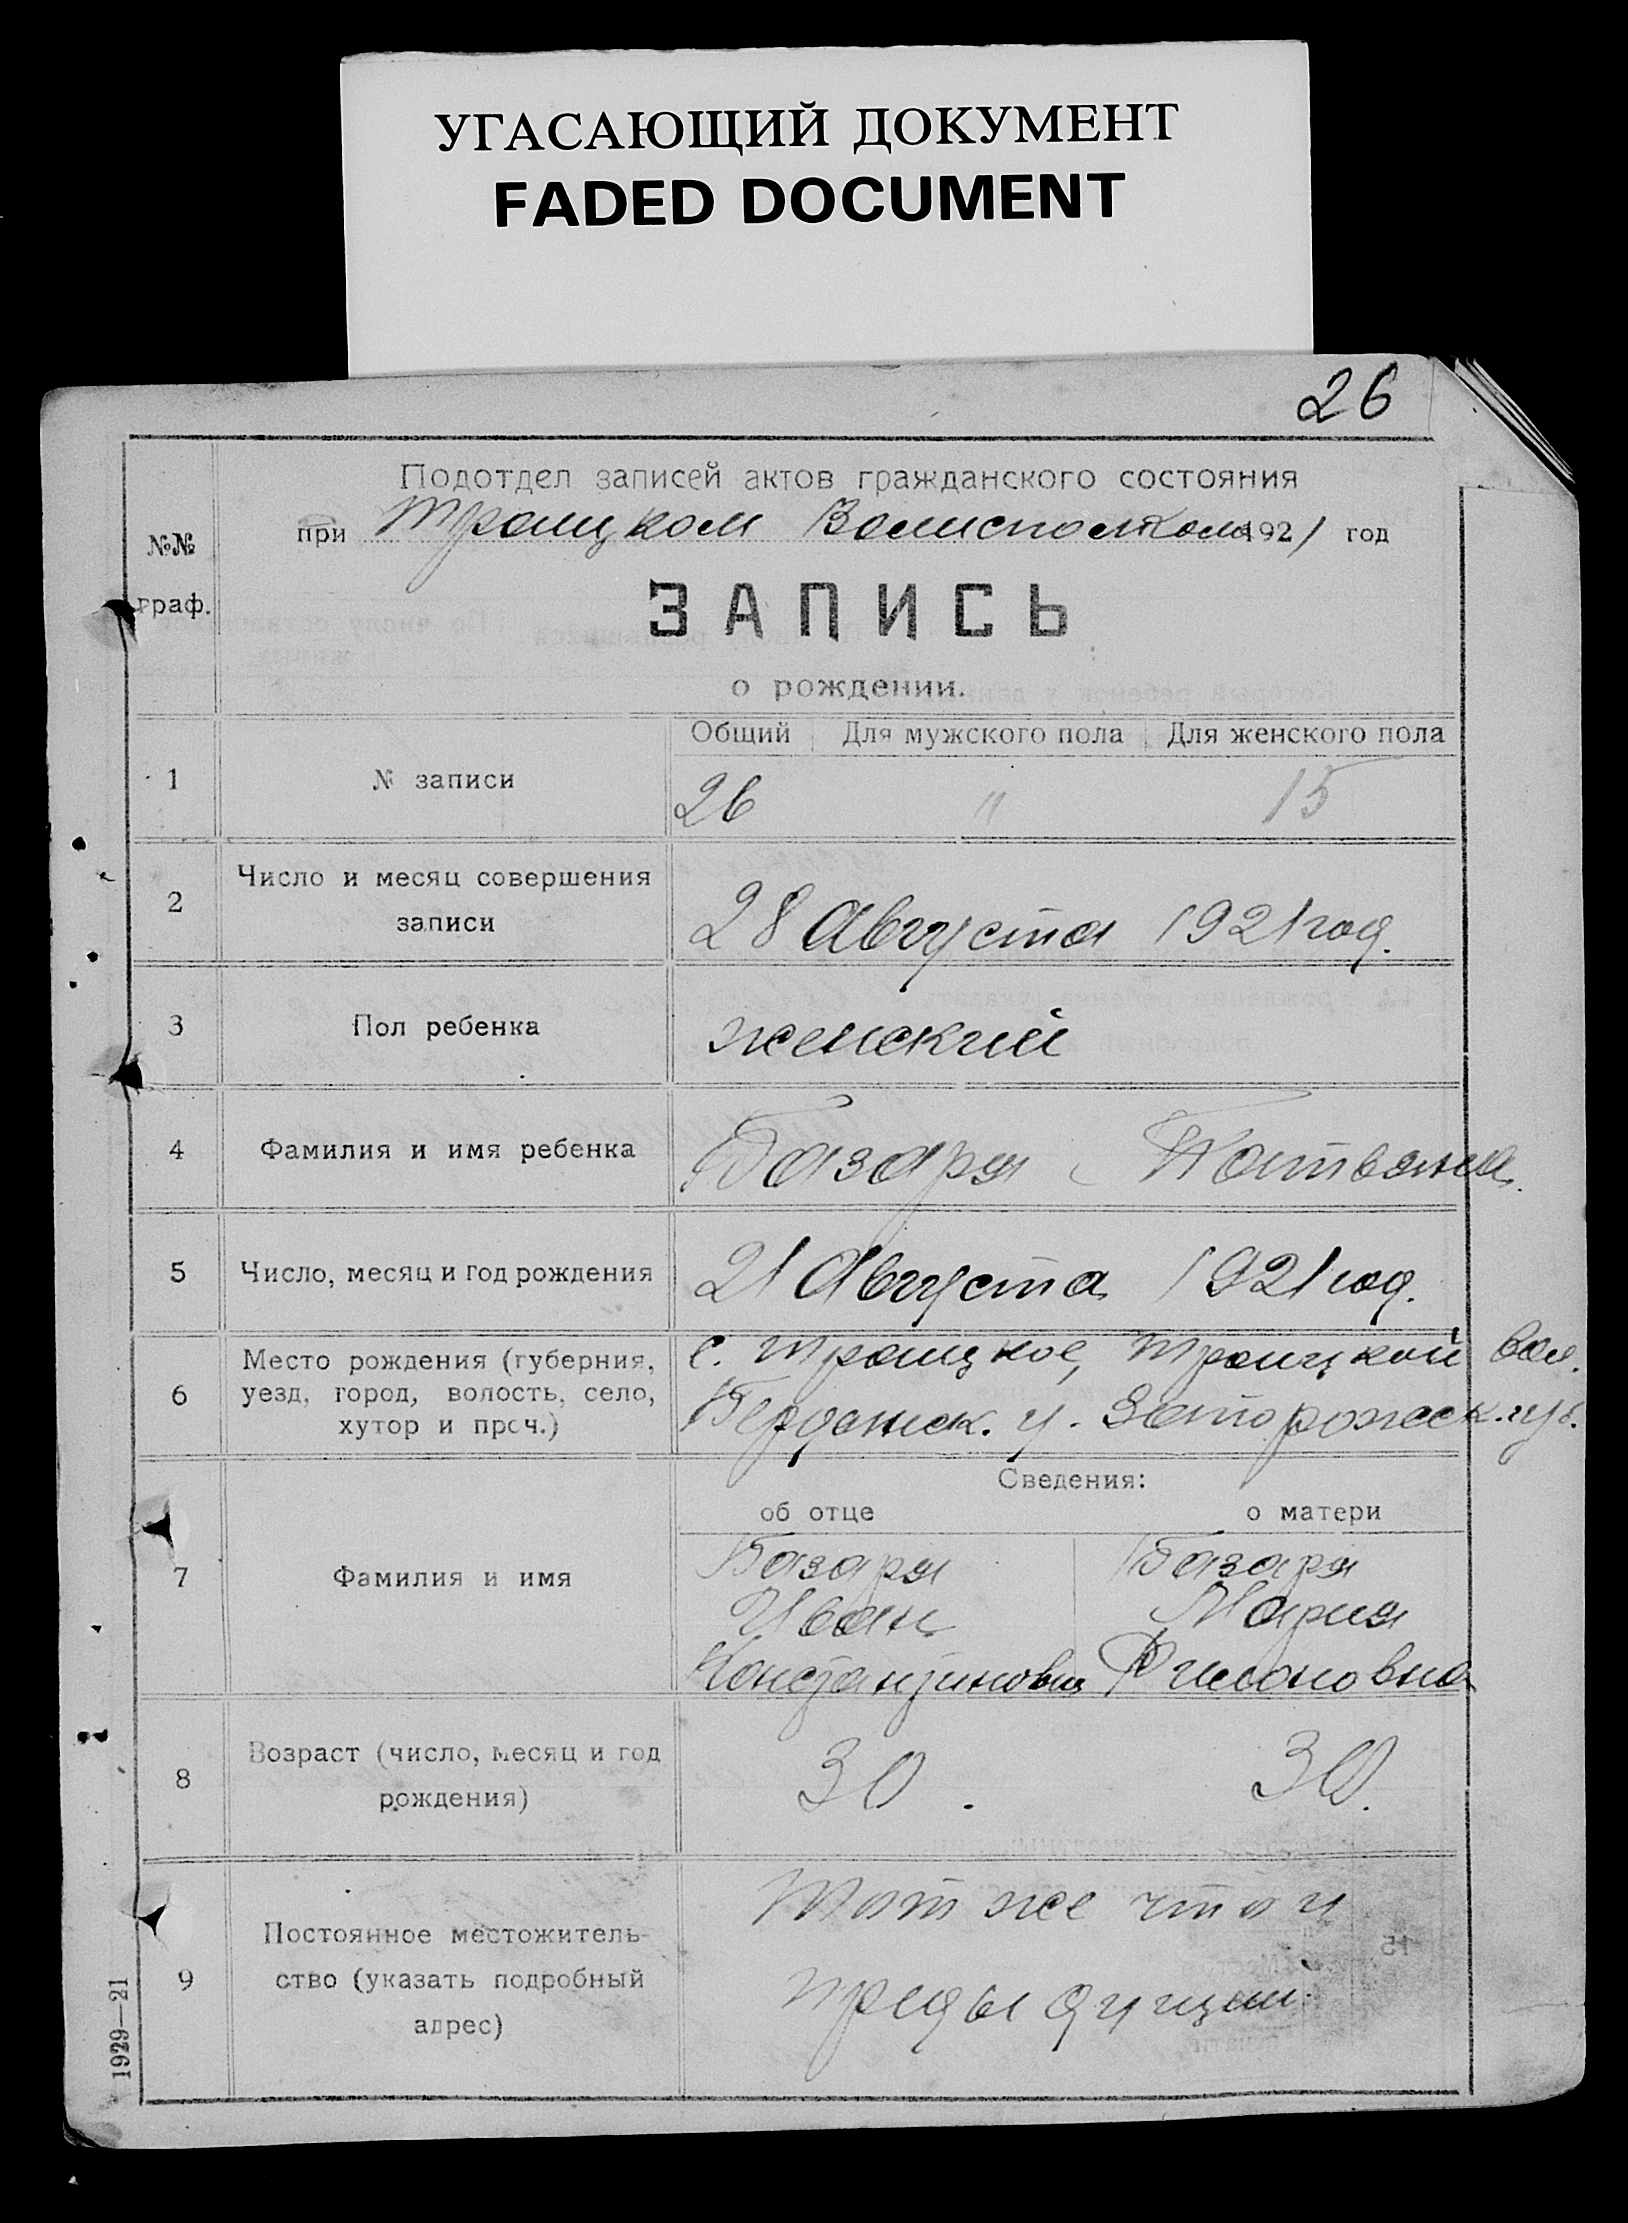 УГАСАЮЩИЙ ДОКУМЕНТ
FADED DOCUMENT
26
Подотдел записей актов гражданского состояния
при Троицком Волисполкоме 1921 год
№№
граф.
ЗАПИСЬ
о рождении.
Общий Для мужского пола Для женского пола
1 № записи 26 " 15
2 Число и месяц совершения
записи
28 Августа 1921 год.
3 Пол ребенка женский
4 Фамилия и имя ребенка Базаря Татьяна.
5 Число, месяц и год рождения 21 Августа 1921 год.
6 Место рождения (губерния,
уезд, город, волость, село,
хутор и проч.)
с. Троицкое, Троицкой вол.
Бердянск. у. Запорожск. губ.
Сведения:
об отце о матери
7 Фамилия и имя
Базаря Базаря
Иван Мария
Константинович
8 Возраст (число, месяц и год
рождения)
30. 30.
9 Постоянное местожитель-
ство (указать подробный
адрес)
Тот же что и
предыдущий.
1929—21